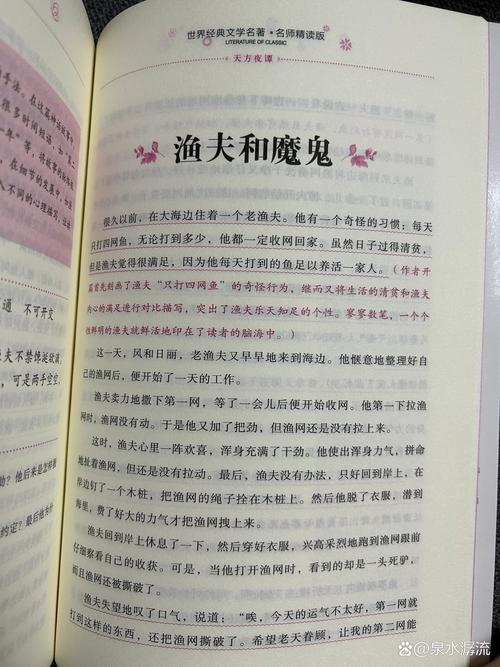 手法。在这篇神话故事中
很多时间短语，如“第二
年”等，将故事的
在细节的发展中，如
人不同的心理描写，
通　不可开交
夫不禁馋涎欲滴
，可是两手空空
助？他后来是怎样
约定？最后
世界经典文学名著·名师精读版
LITERATURE OF CLASSIC
天方夜谭
渔夫和魔鬼
很久以前，在大海边住着一个老渔夫。他有一个奇怪的习惯：每天
只打四网鱼，无论打到多少，他都一定收网回家。虽然日子过得清贫，
但是渔夫觉得很满足，因为他每天打到的鱼足以养活一家人。（作者开
篇首先刻画了渔夫“只打四网鱼”的奇怪行为，继而又将生活的清贫和渔夫
内心的满足进行对比描写，突出了渔夫乐天知足的个性。寥寥数笔，一个个
性鲜明的渔夫就鲜活地印在了读者的脑海中。）
这一天，风和日丽，老渔夫又早早地来到海边。他惬意地整理好自
己的渔网后，便开始了一天的工作。
渔夫卖力地撒下第一网，等了一会儿后便开始收网。他第一下拉渔
网时，渔网没有动。于是他又加了把劲，但渔网还是没有拉上来。
这时，渔夫心里一阵欢喜，浑身充满了干劲。他使出浑身力气，拼命
地扯着渔网，但还是没有拉动。最后，渔夫没有办法，只好回到岸上，在
岸边钉了一个木桩，把渔网的绳子拴在木桩上。然后他脱了衣服，潜到
海里，费了好大的力气才把渔网拽上来。
渔夫回到岸上休息了一下，然后穿好衣服，兴高采烈地跑到渔网跟前
仔细察看自己的收获。可是，当他打开渔网时，看到的却是一头死驴，
而且渔网还被撕破了。
渔夫失望地叹了口气，说道：“唉，今天的运气不太好，第一网就
打到这样的东西，还把渔网撕破了。希望老天眷顾，让我的第二网能
@泉水潺流